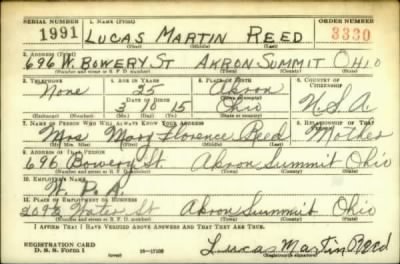 SERIAL NUMBER 1. NAME (Print) ORDER NUMBER
1991 LUCAS MARTIN REED 3330
(First) (Middle) (Last)
2. ADDRESS (Print)
696 W. BOWERY ST AKRON SUMMIT OHIO
(Number and street or R. F. D. number) (Town) (County) (State)
3. TELEPHONE 4. AGE IN YEARS 5. PLACE OF BIRTH 6. COUNTRY OF CITIZENSHIP
None 25 Akron
DATE OF BIRTH
3 10 15 Ohio U S A
(Exchange) (Number) (Mo.) (Day) (Yr.) (State or country)
7. NAME OF PERSON WHO WILL ALWAYS KNOW YOUR ADDRESS 8. RELATIONSHIP OF THAT PERSON
Mrs Mary Florence Reed Mother
(Mr., Mrs., Miss) (First) (Middle) (Last)
9. ADDRESS OF THAT PERSON
696 Bowery St Akron Summit Ohio
(Number and street or R. F. D. number) (Town) (County) (State)
10. EMPLOYER'S NAME
W. P. A.
11. PLACE OF EMPLOYMENT OR BUSINESS
Water St Akron Summit Ohio
(Number and street or R. F. D. number) (Town) (County) (State)
I AFFIRM THAT I HAVE VERIFIED ABOVE ANSWERS AND THAT THEY ARE TRUE.
REGISTRATION CARD
D. S. S. Form 1 (over) Lucas Martin Reed
(Registrant's signature)